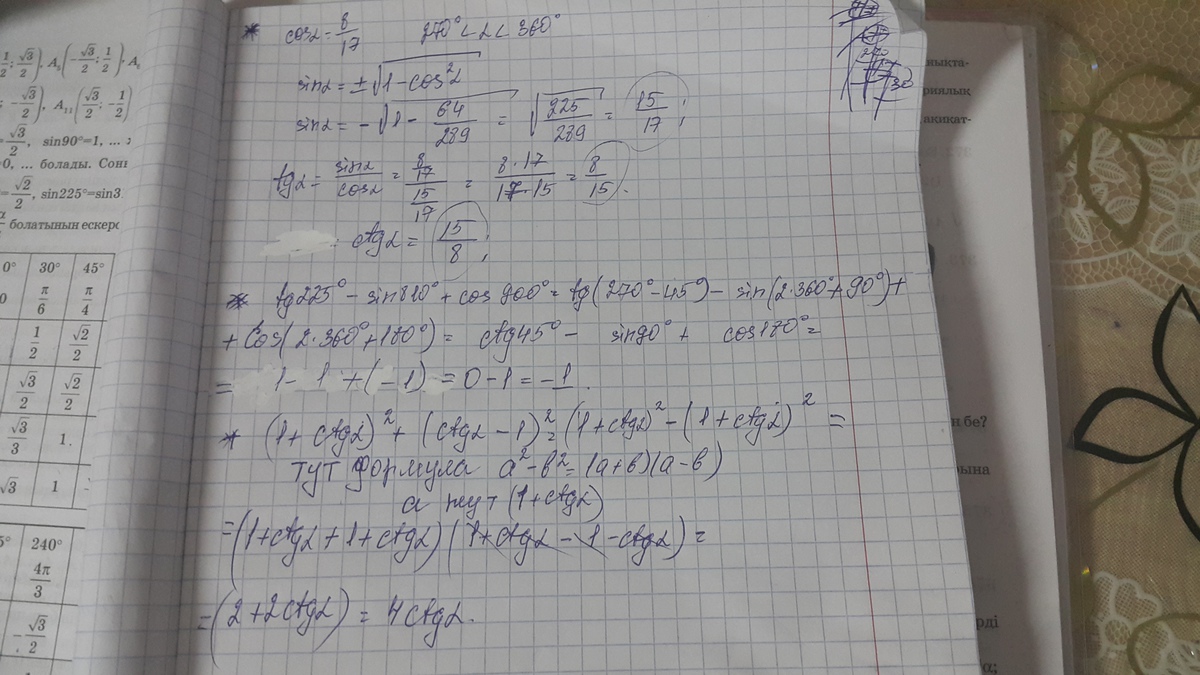 1/2; √3/2), A₅(-√3/2; 1/2), A
; -√3/2), A₁₁(√3/2; -1/2)
=√3/2, sin90°=1, ...
0, ... болады.
=√2/2, sin225°=sin3
болатынын ескерс
0° 30° 45°
0 π/6 π/4
1/2 √2/2
√3/2 √2/2
√3/3 1.
√3 1
5° 240°
4π/3
-√3/2
* cosα = 8/17 270° < α < 360°
sinα = ±√1-cos²α
sinα = -√1 - 64/289 = √225/289 = 15/17;
tgα = sinα/cosα = 8/17 / 15/17 = 8·17/17·15 = 8/15.
ctgα = 15/8;
* tg225° - sin810° + cos900° = tg(270°-45°) - sin(2·360°+90°)+
+ cos(2·360°+180°) = ctg45° - sin90° + cos180° =
= 1 - 1 + (-1) = 0 - 1 = -1.
* (1+ctgα)² + (ctgα-1)² = (1+ctgα)² - (1+ctgα)² =
тут формула a²-b² = (a+b)(a-b)
а тут (1+ctgα)
=(1+ctgα+1+ctgα)(1+ctgα-1-ctgα) =
=(2+2ctgα) = 4ctgα.
ныкта-
акикат-
бе?